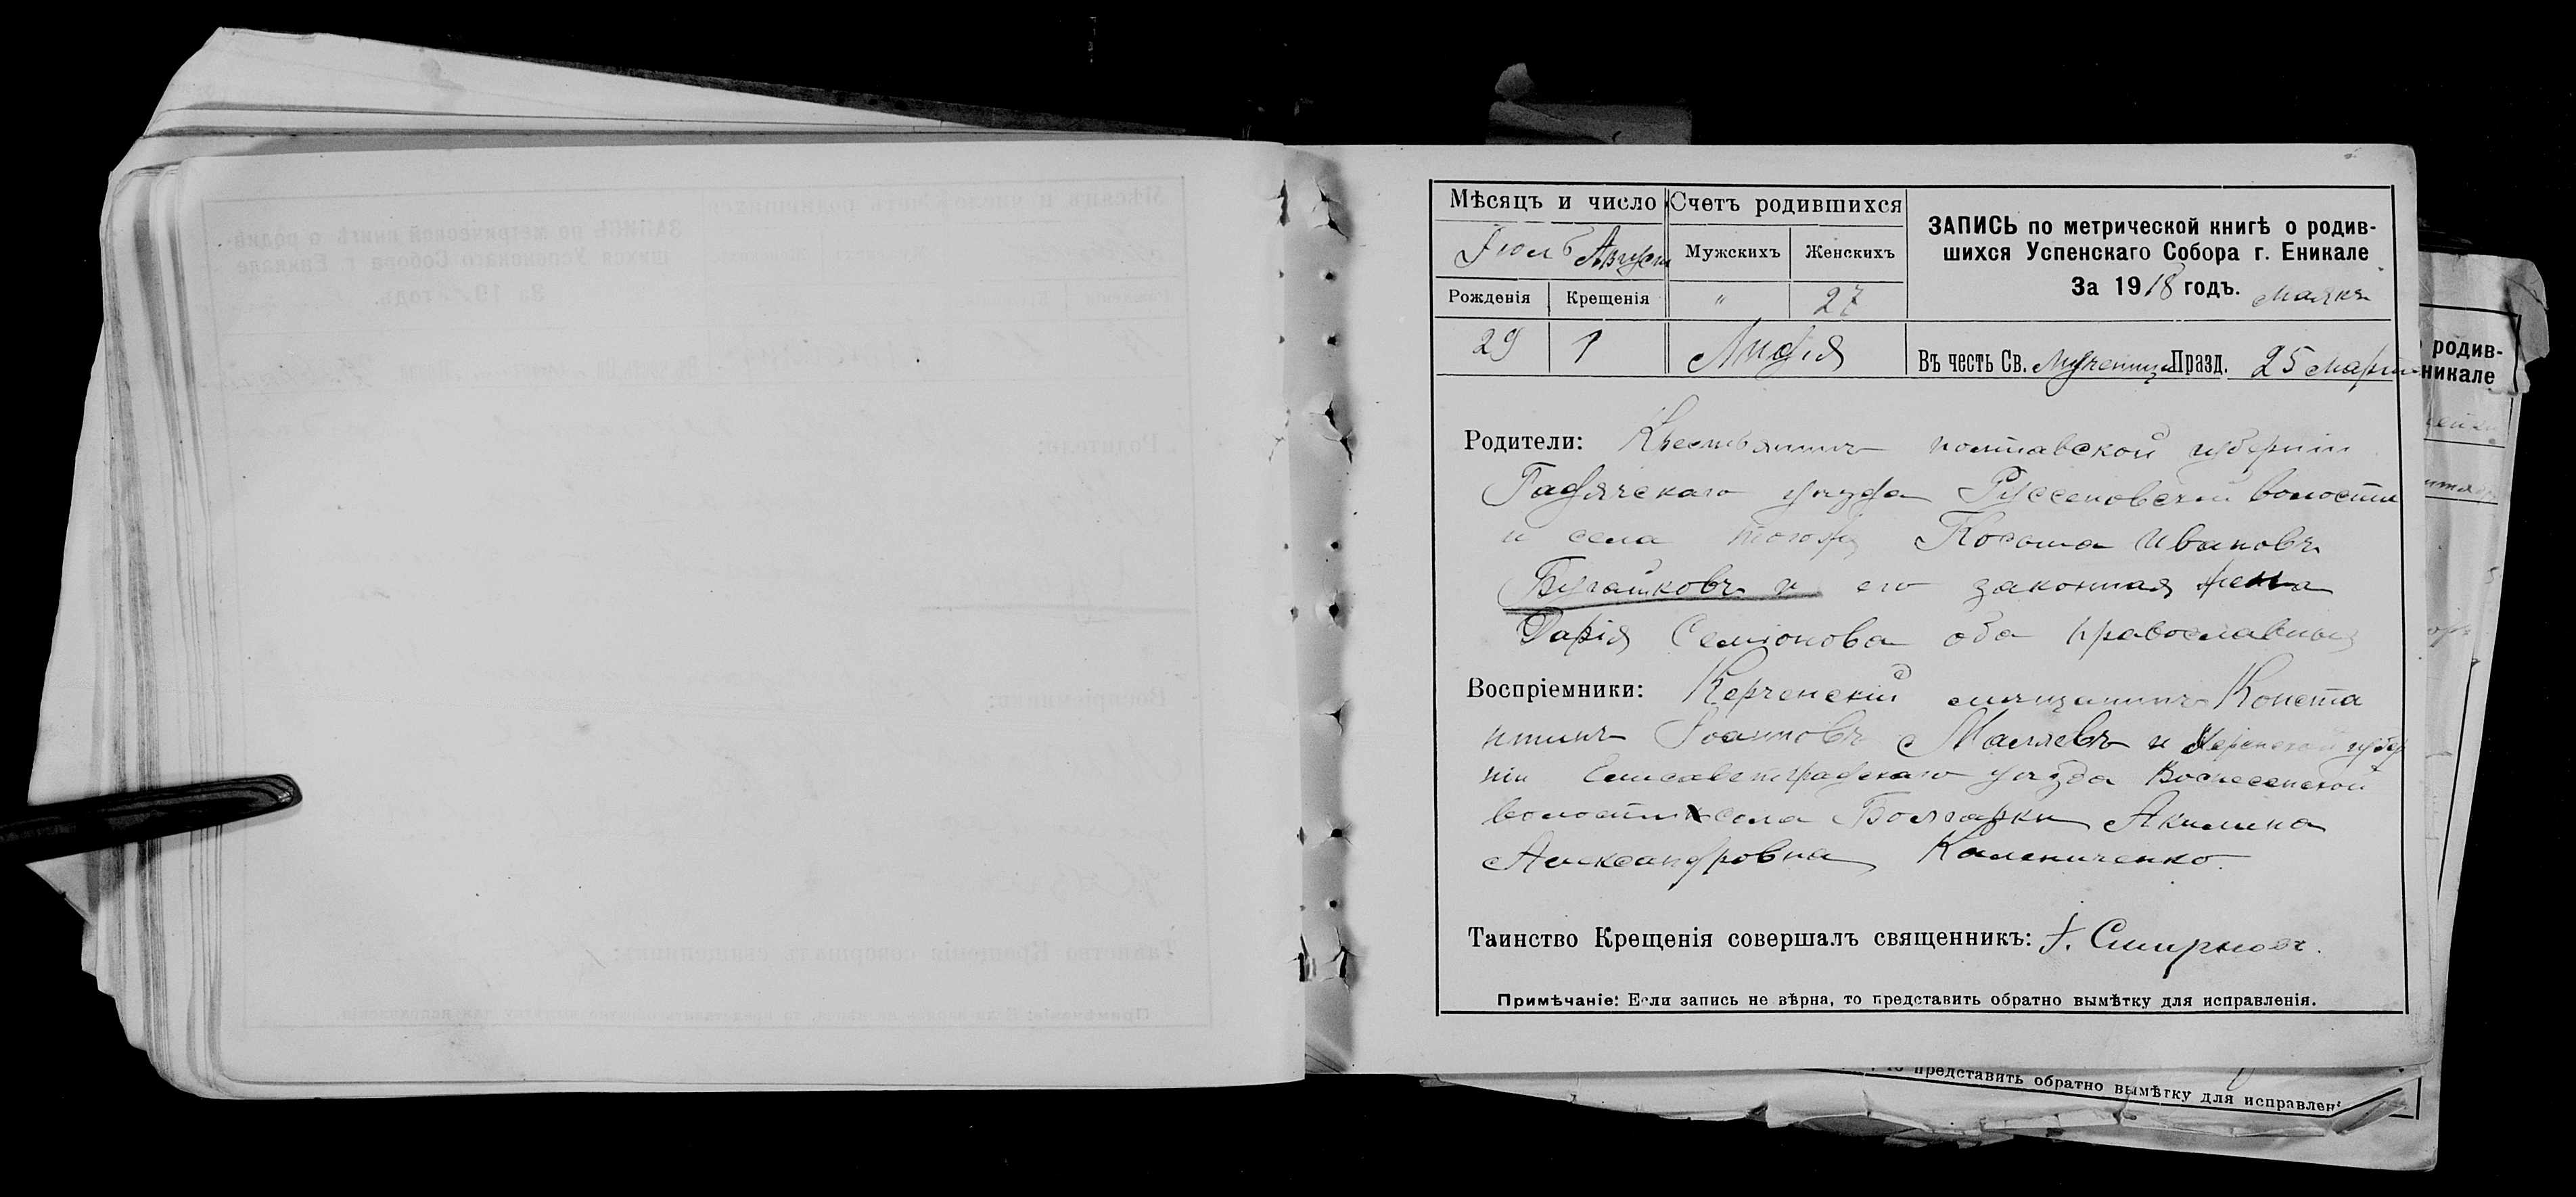 Мѣсяцъ и число
Счетъ родившихся
Іюль Августъ
Мужскихъ
Женскихъ
Рожденія
Крещенія
"
27
ЗАПИСЬ по метрической книгѣ о родив-
шихся Успенскаго Собора г. Еникале
За 1918 годъ. Маякъ
29
1
Лидія
Въ честь Св. Мученицы Празд. 25 Марта
Родители: Крестьянинъ полтавской губерніи
Гадячскаго уѣзда волости
и села тогоже Косьма Ивановъ
Бугайковъ и его законная жена
Дарія Семіонова оба православныя
Воспріемники: Керченскій мѣщанинъ Конста
нтинъ Іоанновъ Маляевъ и Херсонской губер
ніи Елисаветградскаго уѣзда Вознесенской
волости села Болгарки Акилина
Александровна Калениченко.
Таинство Крещенія совершалъ священникъ: І. Смирновъ.
Примѣчаніе: Если запись не вѣрна, то представить обратно вымѣтку для исправленія.
родив-
никале
то представить обратно вымѣтку для исправлені